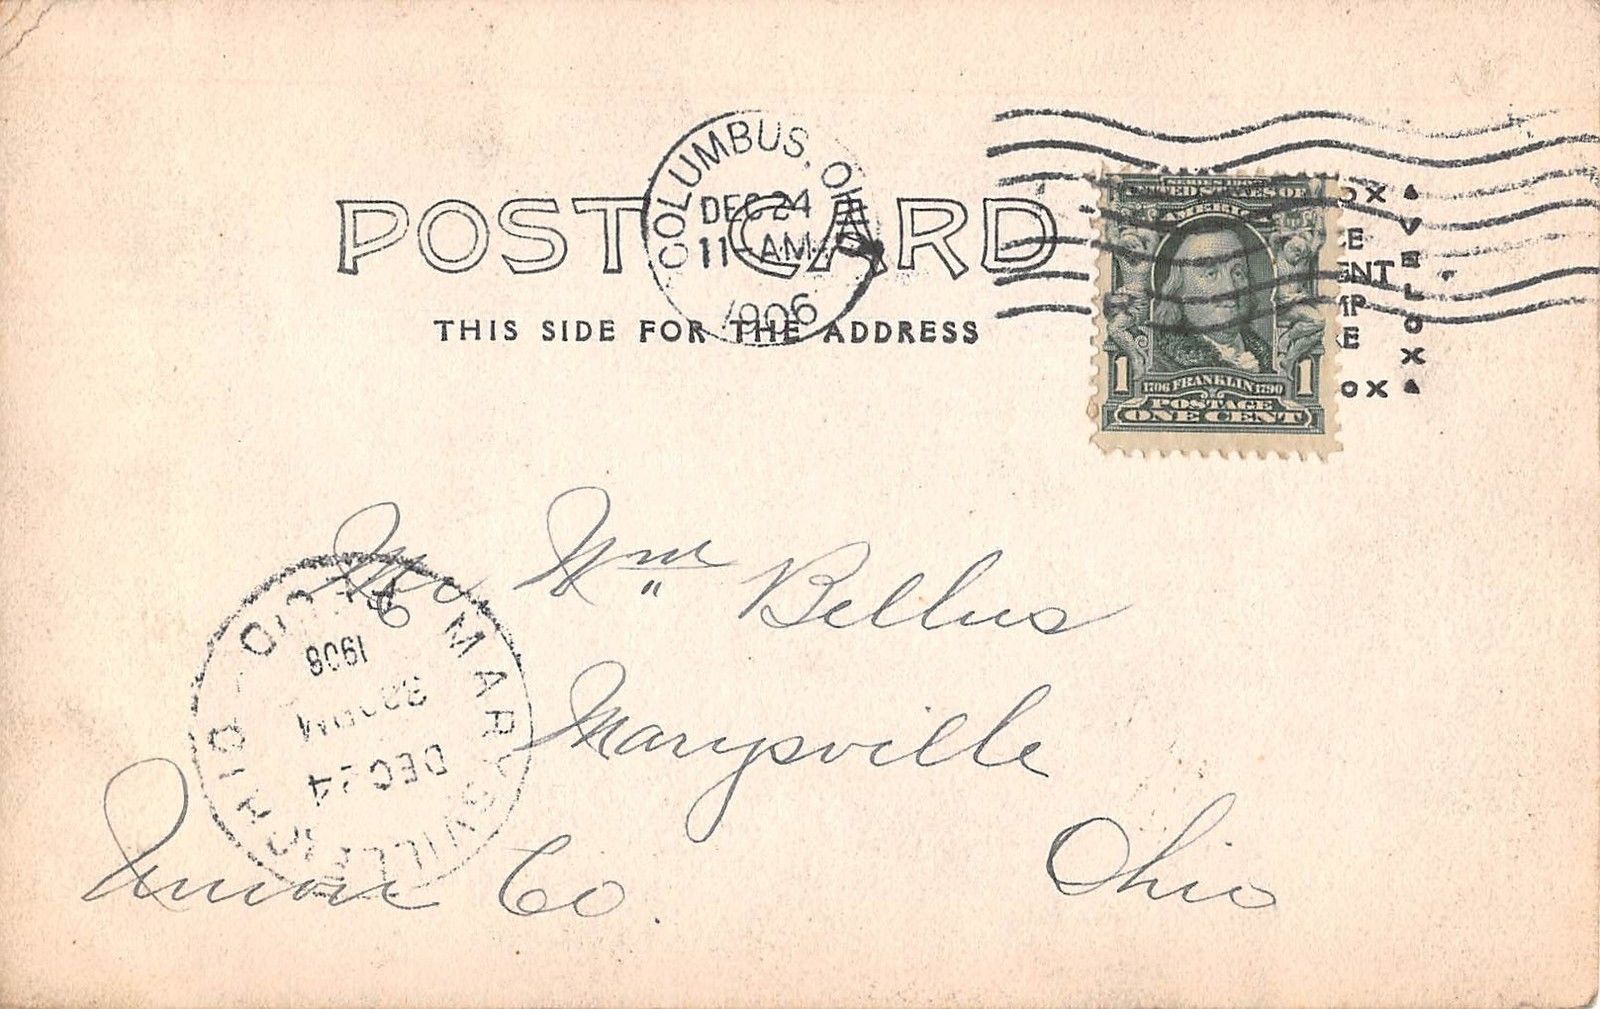 COLUMBUS, OHIO
DEC 24
11-AM
1906
POST CARD
THIS SIDE FOR THE ADDRESS
UNITED STATES OF
AMERICA
1 1706 FRANKLIN 1790 1
POSTAGE
ONE CENT
VELOX
Mr. Wm Bellus
Marysville
Union Co. Ohio
MARYSVILLE
OHIO
DEC 24
REC'D